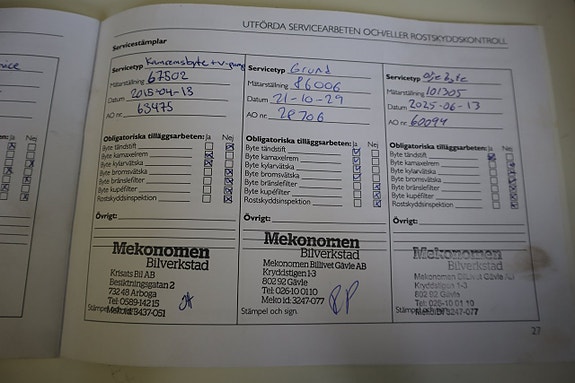 UTFÖRDA SERVICEARBETEN OCH/ELLER ROSTSKYDDSKONTROLL
Servicestämplar
Servicetyp Kamremsbyte + v-pump
Mätarställning 67502
Datum 2015-04-13
AO nr. 63475
Obligatoriska tilläggsarbeten: Ja Nej
Byte tändstift
Byte kamaxelrem
Byte kylarvätska
Byte bromsvätska
Byte bränslefilter
Byte kupéfilter
Rostskyddsinspektion
Övrigt:
Mekonomen
Bilverkstad
Krisats Bil AB
Besiktningsgatan 2
732 48 Arboga
Tel: 0589-142 15
Stämpel och sign.
Servicetyp Grund
Mätarställning 86006
Datum 21-10-29
AO nr. 28706
Obligatoriska tilläggsarbeten: Ja Nej
Byte tändstift
Byte kamaxelrem
Byte kylarvätska
Byte bromsvätska
Byte bränslefilter
Byte kupéfilter
Rostskyddsinspektion
Övrigt:
Mekonomen
Bilverkstad
Mekonomen Billivet Gävle AB
Kryddstigen 1-3
802 92 Gävle
Tel: 026-10 01 10
Meko id: 3247-077
Stämpel och sign.
Servicetyp Olje byte
Mätarställning 101305
Datum 2025-06-13
AO nr. 60094
Obligatoriska tilläggsarbeten: Ja Nej
Byte tändstift
Byte kamaxelrem
Byte kylarvätska
Byte bromsvätska
Byte bränslefilter
Byte kupéfilter
Rostskyddsinspektion
Övrigt:
Mekonomen
Bilverkstad
Mekonomen Billivet Gävle AB
Kryddstigen 1-3
802 92 Gävle
Tel: 026-10 01 10
27